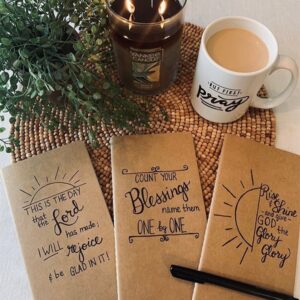 BUT FIRST,
Pray
THIS IS THE DAY
that the
Lord
has made;
I WILL rejoice
& be GLAD IN IT!
COUNT YOUR
Blessings
name them
ONE by ONE
Rise
& Shine
and give
GOD the
Glory
Glory